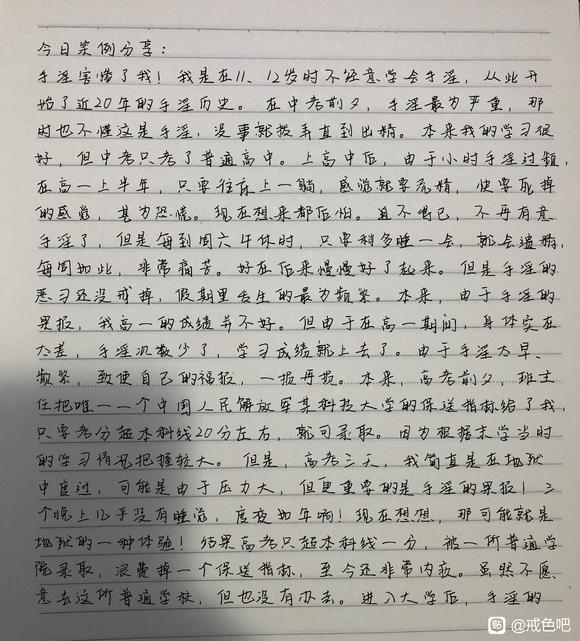 今日案例分享：
手淫害惨了我！我是在11、12岁时不经意学会手淫，从此开
始了近20年的手淫历史。在中考前夕，手淫最为严重，那
时也不懂这是手淫，没事就拨弄直到出精。本来我的学习很
好，但中考只考了普通高中。上高中后，由于小时手淫过频，
在高一上半年，只要往床上一躺，感觉就要漏精，快要死掉
的感觉，甚为恐慌。现在想来都后怕。迫不得已，不再有意
手淫了，但是每到周六午休时，只要稍多睡一会，就会遗精，
每周如此，非常痛苦。好在后来慢慢好了起来。但是手淫的
恶习还没戒掉，假期里发生的最为频繁。本来，由于手淫的
果报，我高一的成绩并不好。但由于在高一期间，身体实在
太差，手淫次数少了，学习成绩就上去了。由于手淫太早、
频繁，致使自己的福报，一损再损。本来，高考前夕，班主
任把唯一一个中国人民解放军某科技大学的保送指标给了我，
只要考分超本科线20分左右，就可录取。因为根据末学当时
的学习情况把握较大。但是，高考三天，我简直是在地狱
中度过，可能是由于压力大，但更重要的是手淫的果报！三
个晚上几乎没有睡觉，度夜如年啊！现在想想，那可能就是
地狱的一种体验！结果高考只超本科线一分，被一所普通学
院录取，浪费掉一个保送指标，至今还非常内疚。虽然不愿
意去这所普通学校，但也没有办法。进入大学后，手淫的
贴 @戒色吧